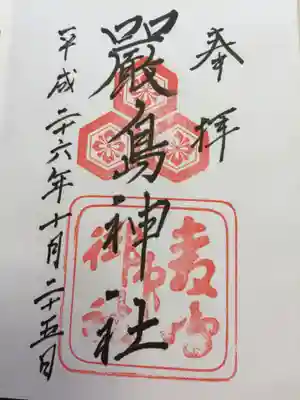 奉拝
嚴島神社
平成二十六年十月二十五日